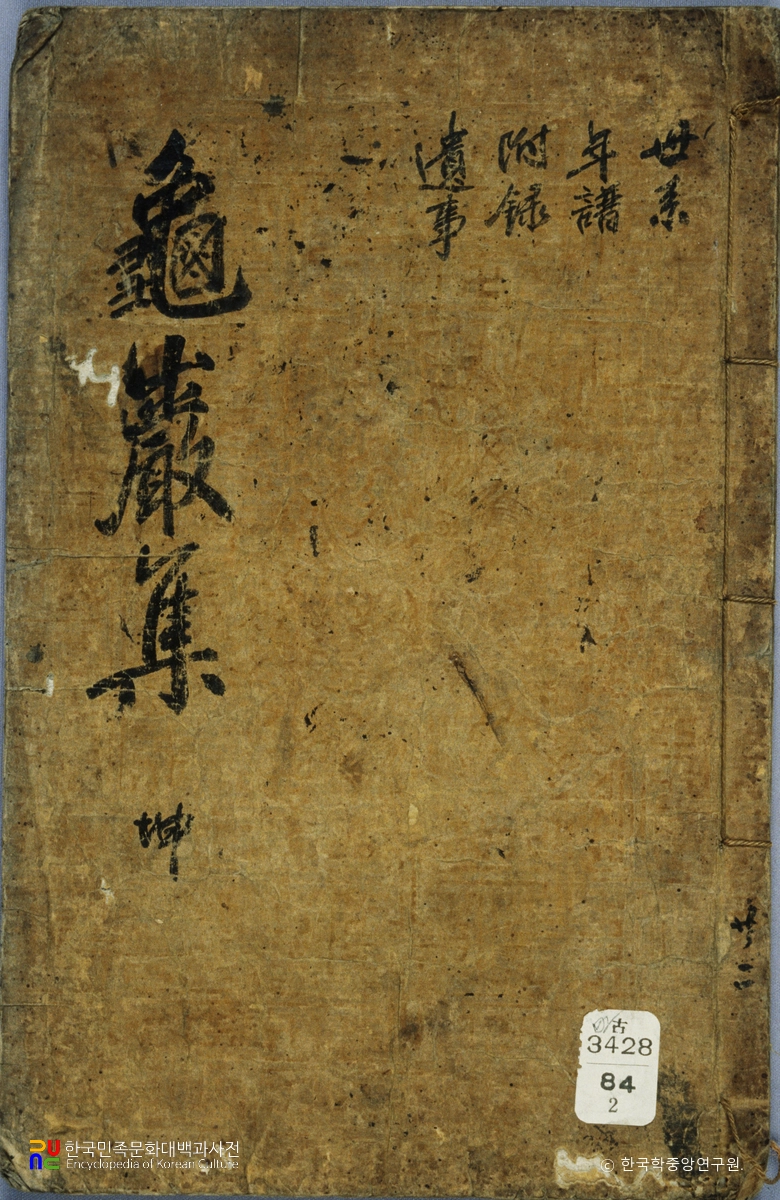 世系
年譜
附錄
遺事
龜巖集
坤
共二
古
3428
84
2
한국민족문화대백과사전
Encyclopedia of Korean Culture
© 한국학중앙연구원.